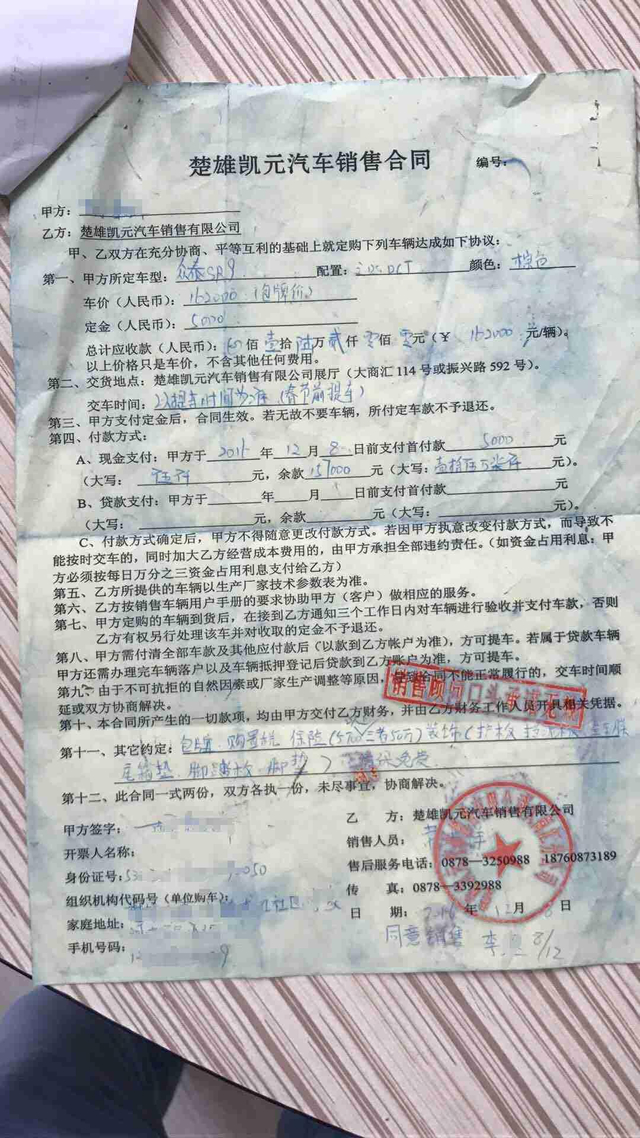 楚雄凯元汽车销售合同 编号:
甲方:
乙方: 楚雄凯元汽车销售有限公司
甲、乙双方在充分协商、平等互利的基础上就定购下列车辆达成如下协议:
第一、甲方所定车型: 众泰SR9 配置: DCT 颜色: 棕色
车价（人民币）: 162000（包牌价）
定金（人民币）: 5000
总计应收款（人民币）: 佰 壹 拾 陆 万 贰 仟 零 佰 零 元（￥ 162000 元/辆）。
以上价格只是车价，不含其他任何费用。
第二、交货地点: 楚雄凯元汽车销售有限公司展厅（大商汇 114 号或振兴路 592 号）。
交车时间: 以提车时间为准（春节前提车）
第三、甲方支付定金后，合同生效。若无故不要车辆，所付定车款不予退还。
第四、付款方式:
A、现金支付: 甲方于 2016 年 12 月 8 日前支付首付款 5000 元
（大写: 伍仟 元，余款 157000 元（大写: 元）。
B、贷款支付: 甲方于 年 月 日前支付首付款 元
（大写: 元，余款 元（大写: 元）。
C、付款方式确定后，甲方不得随意更改付款方式。若因甲方执意改变付款方式，而导致不
能按时交车的，同时加大乙方经营成本费用的，由甲方承担全部违约责任。（如资金占用利息: 甲
方必须按每日万分之三资金占用利息支付给乙方）
第五、乙方所提供的车辆以生产厂家技术参数表为准。
第六、乙方按销售车辆用户手册的要求协助甲方（客户）做相应的服务。
第七、甲方定购的车辆到货后，在接到乙方通知三个工作日内对车辆进行验收并支付车款，否则
乙方有权另行处理该车并对收取的定金不予退还。
第八、甲方需付清全部车款及其他应付款后（以款到乙方帐户为准），方可提车。若属于贷款车辆
甲方还需办理完车辆落户以及车辆抵押登记后贷款到乙方账户为准，方可提车。
第九、由于不可抗拒的自然因素或厂家生产调整等原因，导致合同不能正常履行的，交车时间顺
延或双方协商解决。
销售顾问口头承诺无效
第十、本合同所产生的一切款项，均由甲方交付乙方财务，并由乙方财务工作人员开具相关凭据。
第十一、其它约定: 包牌、购置税、保险（三者50万）装饰（护板
尾箱垫、脚踏板、脚垫） 免费
第十二、此合同一式两份，双方各执一份，未尽事宜，协商解决。
甲方签字:
乙 方: 楚雄凯元汽车销售有限公司
开票人名称:
销售人员:
身份证号: 53 0050
售后服务电话: 0878—3250988 18760873189
组织机构代码号（单位购车）:
传 真: 0878—3392988
家庭地址:
日 期: 2016 年 12 月 8 日
手机号码: 9
同意销售 8/12